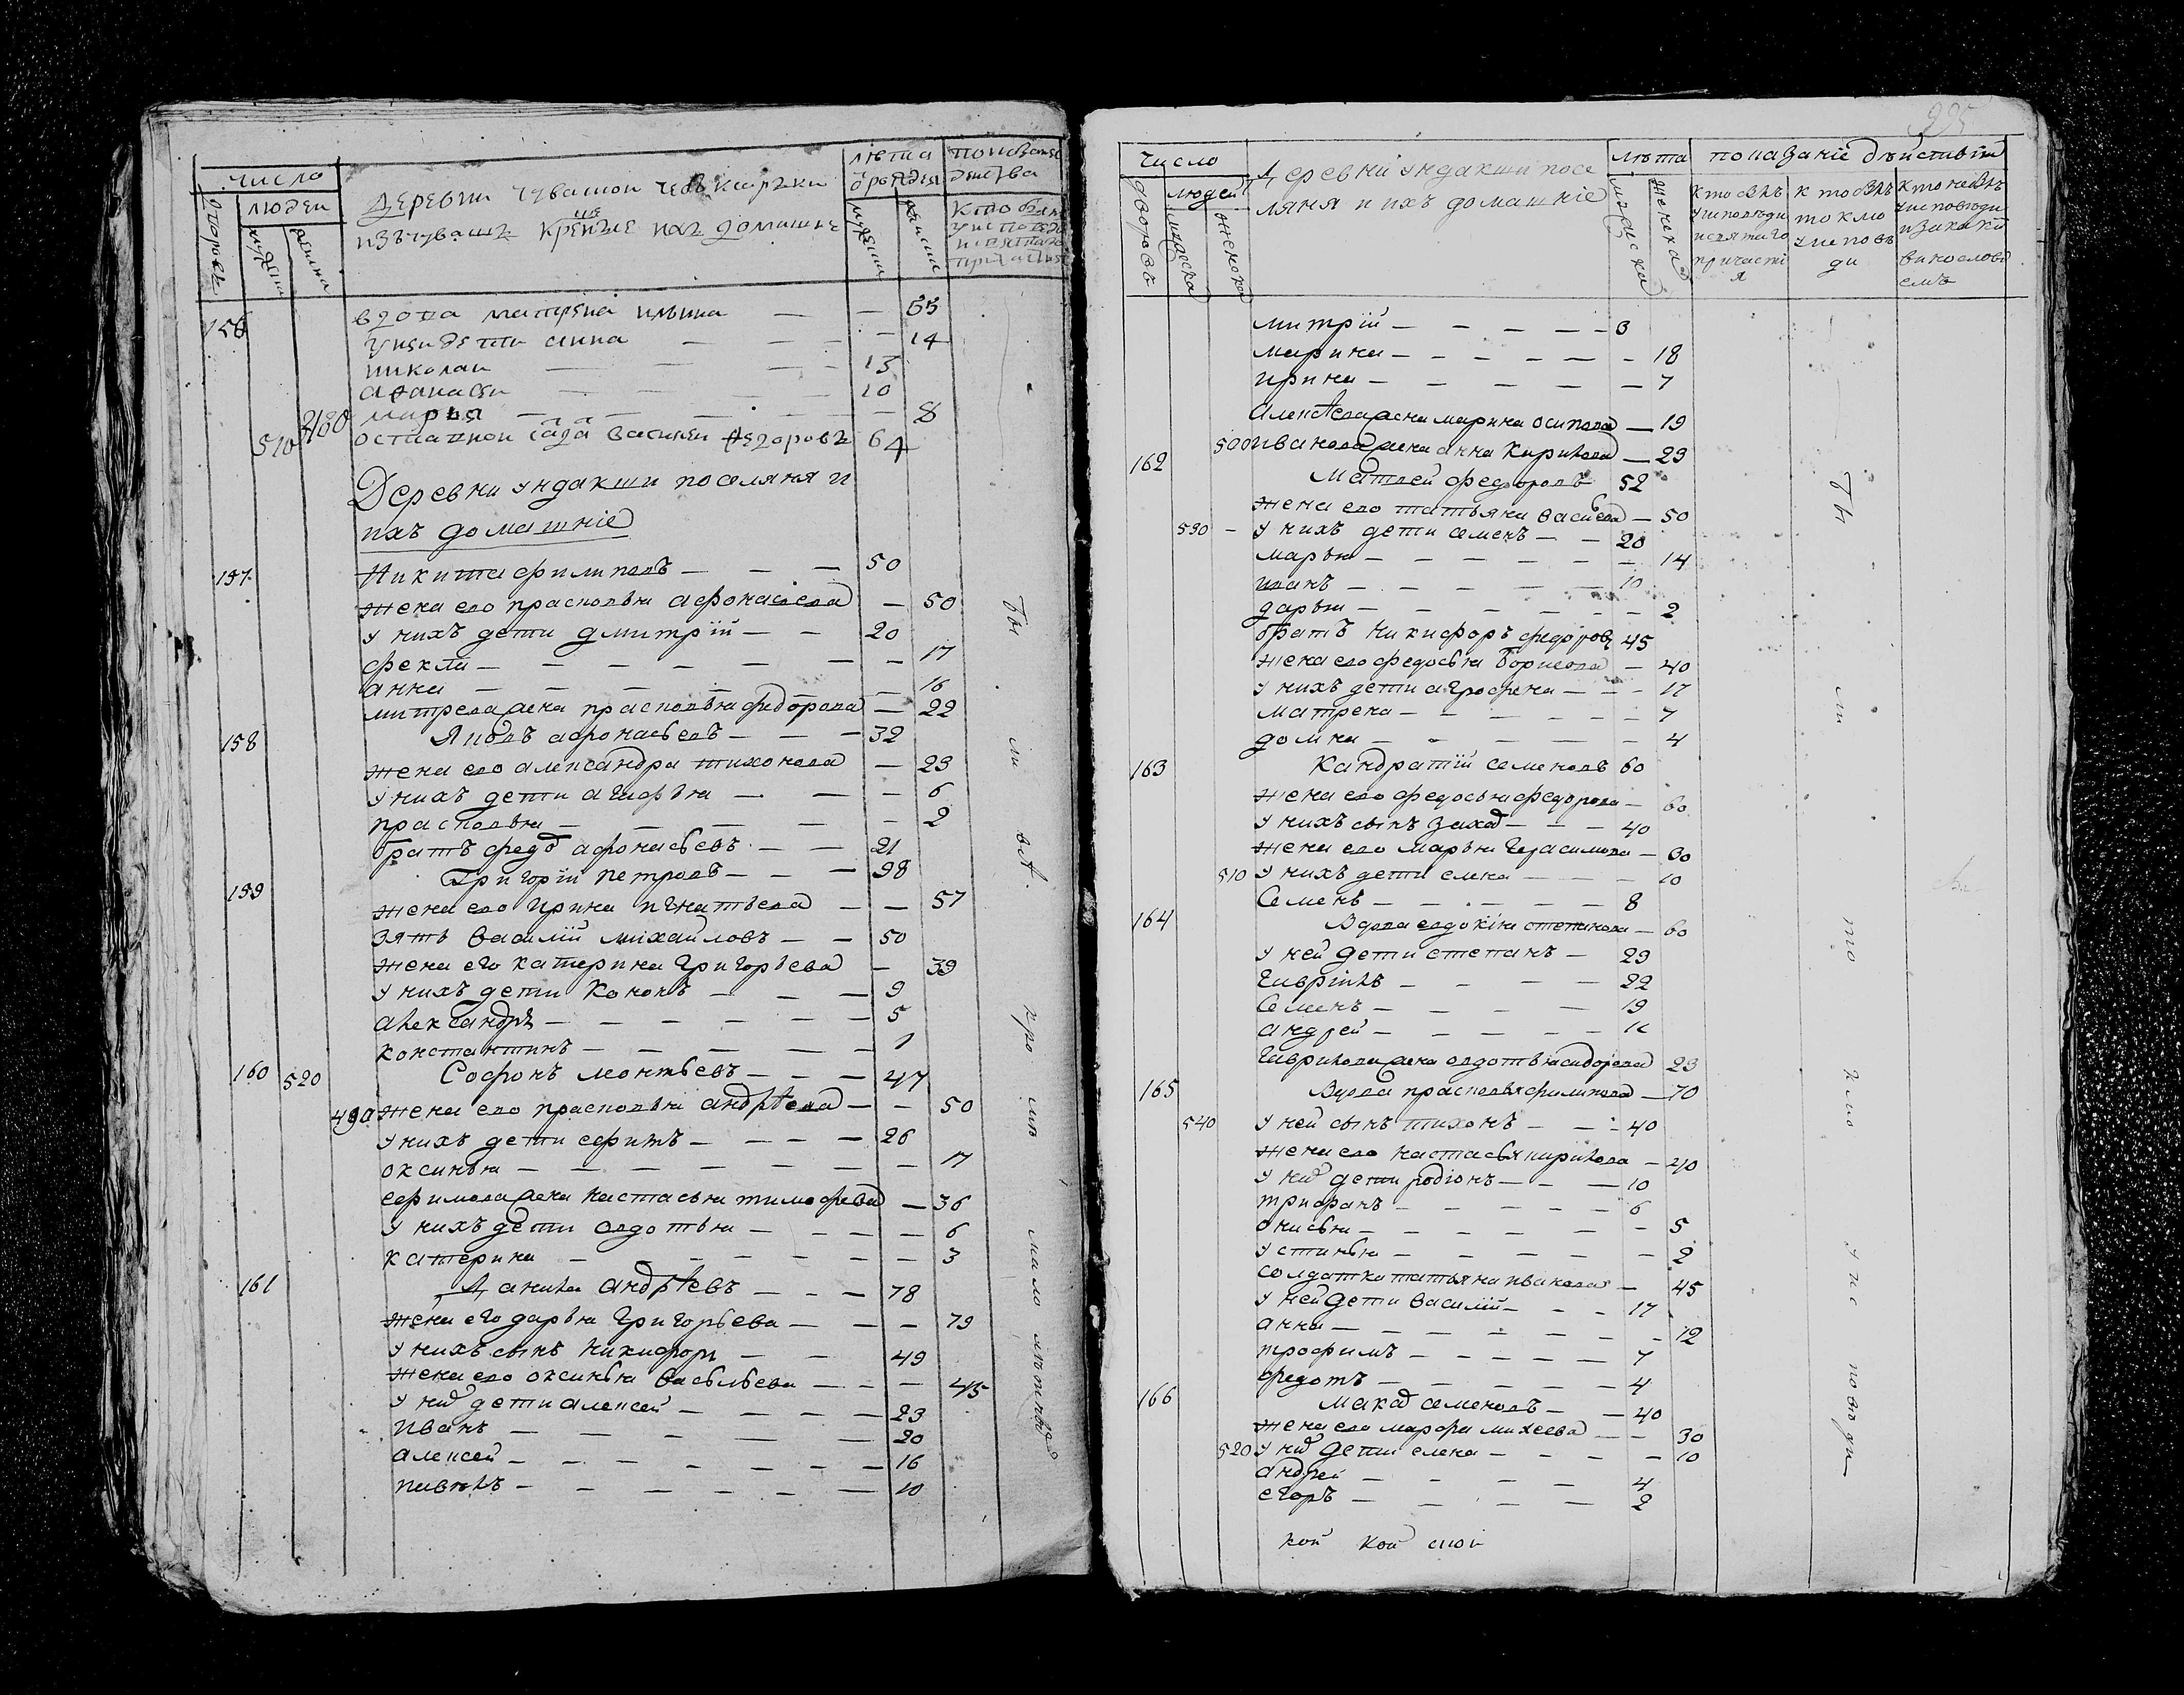 число
людей
дворовъ
мужеска
женска
Деревни чувашой чебаксирски
изъ чувашъ крещеные ихъ домашнiе
лѣта
показанiе
156
вдова матрена ильина — — 55
у неи дѣти анна — — — 14
николаи — — — 13
афанасеи — — — 10
480 марья — — — — — 8
510 василеи Ѳедоровъ 64
Деревни ундакши поселяня и
ихъ домашнiе
157
Никита филиповъ — — — 50
жена ево прасковья афонасева — 50
у нихъ дети дмитрiй — — 20
фекла — — — — — — 17
анна — — — — — — 16
митрева жена прасковья фидорова — 22
158 Яковъ афонасьевъ — — — 32
жена ево александра тихонова — 23
у нихъ дети агафья — — — 6
прасковья — — — — — 2
братъ федо афонасьевъ — — 21
159 Григорiй петровъ — — — 98
жена ево ирина игнатьева — — 57
зять василiй михаиловъ — — 50
жена его катерина григорьева — 39
у нихъ дети кононъ — — — 9
александръ — — — — — — 5
константинъ — — — — — 1
160 520 Софонъ леонтьевъ — — — 47
490 жена ево прасковья андрѣева — — 50
у нихъ дети ефимъ — — — — 26
оксинья — — — — — — — 17
ефимова жена настасья тимофеева — 36
у нихъ дети овдотья — — — — 6
катерина — — — — — — 3
161 Данила андрѣевъ — — — 78
жена его дарья григорьева — — — 79
у нихъ сынъ никифоръ — — 49
жена ево оксинья васильева — — — 45
у них дети алексей — — — — 23
иванъ — — — — — — 20
алексей — — — — — — — — 16
павелъ — — — — — — — 10
ты ми въ. кро ме мало летных
225
число
людей
дворовъ
мужеска
женска
Деревни ундакши посе
ляня и ихъ домашнiе
лѣта
мужеска
женска
показанiе дѣйствiи
кто былъ
у исповѣди
и святаго
причастi
я
кто былъ
токмо
у испове
ди
кто небылъ
у исповѣди
и за каки
митрiй — — — — — 3
марина — — — — — — 18
ирина — — — — — — 7
алексѣева жена марина осипова — 19
500 иванова жена анна кирилова — 23
162 Матвей федоровъ 52
жена ево татьяна васиева — 50
530 — у нихъ дети семенъ — — 20
марья — — — — — — 14
иванъ — — — — — 10
дарья — — — — — — 2
братъ никифоръ федоровъ 45
жена ево федосья борисова — 40
у нихъ дети аграфена — — — 17
матрена — — — — — — 7
домна — — — — — 4
163 Кандратiй семеновъ 60
жена ево федосья федорова — 60
у нихъ сынъ захар — — — 40
жена ево марья герасимова — 30
510 у нихъ дети елена — — — — 10
семенъ — — — — — — 8
164 Вдова евдокiя степанова — 60
у ней дети степанъ — 23
гаврилъ — — — — 22
семенъ — — — — 19
андрей — — — — — 16
гаврилова жена овдотья сидорова 23
165 Вдова прасковья филипова — 70
540 у ней сынъ тихонъ — — — 40
жена ево настасья кирилова — 40
у них дети родiонъ — — — 10
трифанъ — — — — — 6
онисья — — — — — — 5
устинья — — — — — — 2
солдатка татьяна иванова — 45
у ней дети василiй — — — 17
анна — — — — — — — 12
трофимъ — — — — — 7
федотъ — — — — — 4
166 Макар семеновъ — — 40
жена ево марфа михеева — — 30
520 у них дети елена — — — — 10
андрей — — — — 4
егоръ — — — — 2
кой кой
ты си то кмо у ис поведи